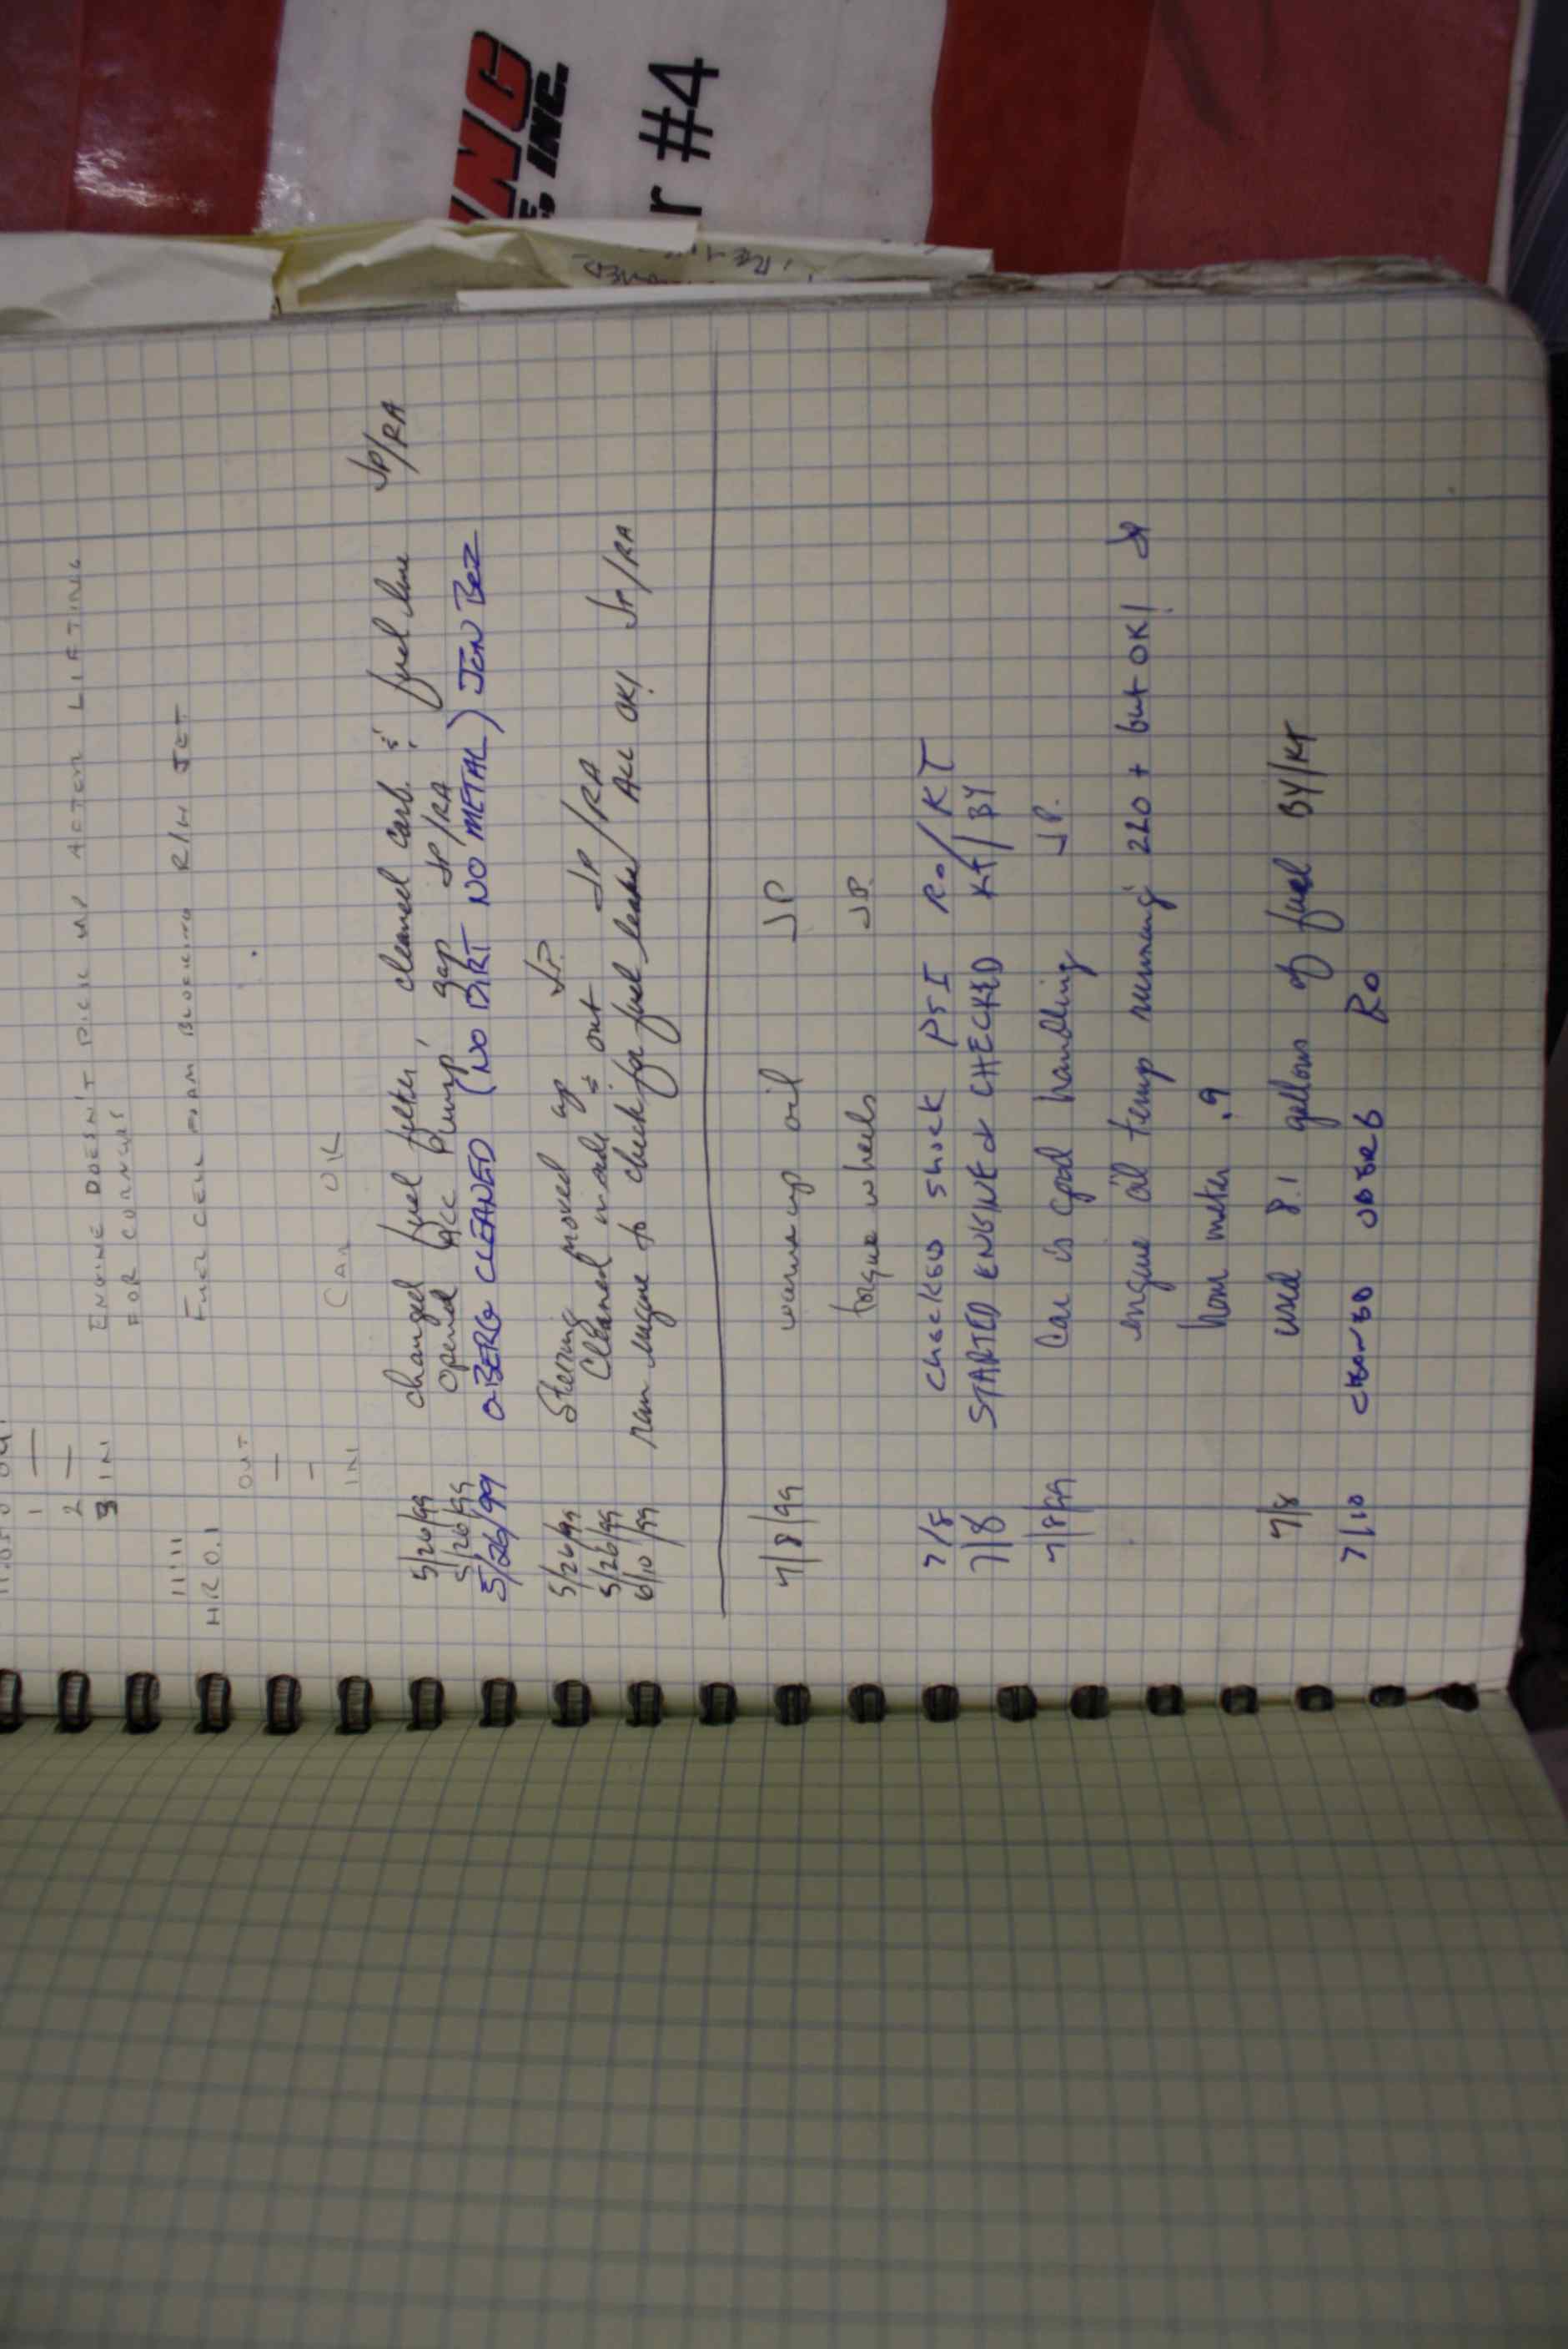 1 —
2 —
3 IN
ENGINE DOESN'T PICK UP AFTER LIFTING
FOR CORNERS
11:11
HR 0.1
FUEL CELL FOAM BLOCKING R/H JET
OUT
—
—
IN CAR OK
5/26/99 changed fuel filter, cleaned carb. & fuel line JP/RA
5/26/99 opened Acc Pump, gap JP/RA
5/26/99 OBERG CLEANED (NO DIRT NO METAL) JON BEZ
5/26/99 Steering moved up JP.
5/26/99 Cleaned inside & out JP/RA
6/10/99 ran engine to check for fuel leaks/ ALL OK! JP/RA
7/8/99 warm up oil JP
torque wheels JP.
7/8 checked shock PSI Ro/KT
7/8 STARTED ENGINE & CHECKED KT/BY
7/8/99 Car is good handling JP.
engine oil temp running 220 + but OK! JP
hour meter .9
7/8 used 8.1 gallons of fuel BY/KT
7/10 Ro
NG
, INC.
r #4